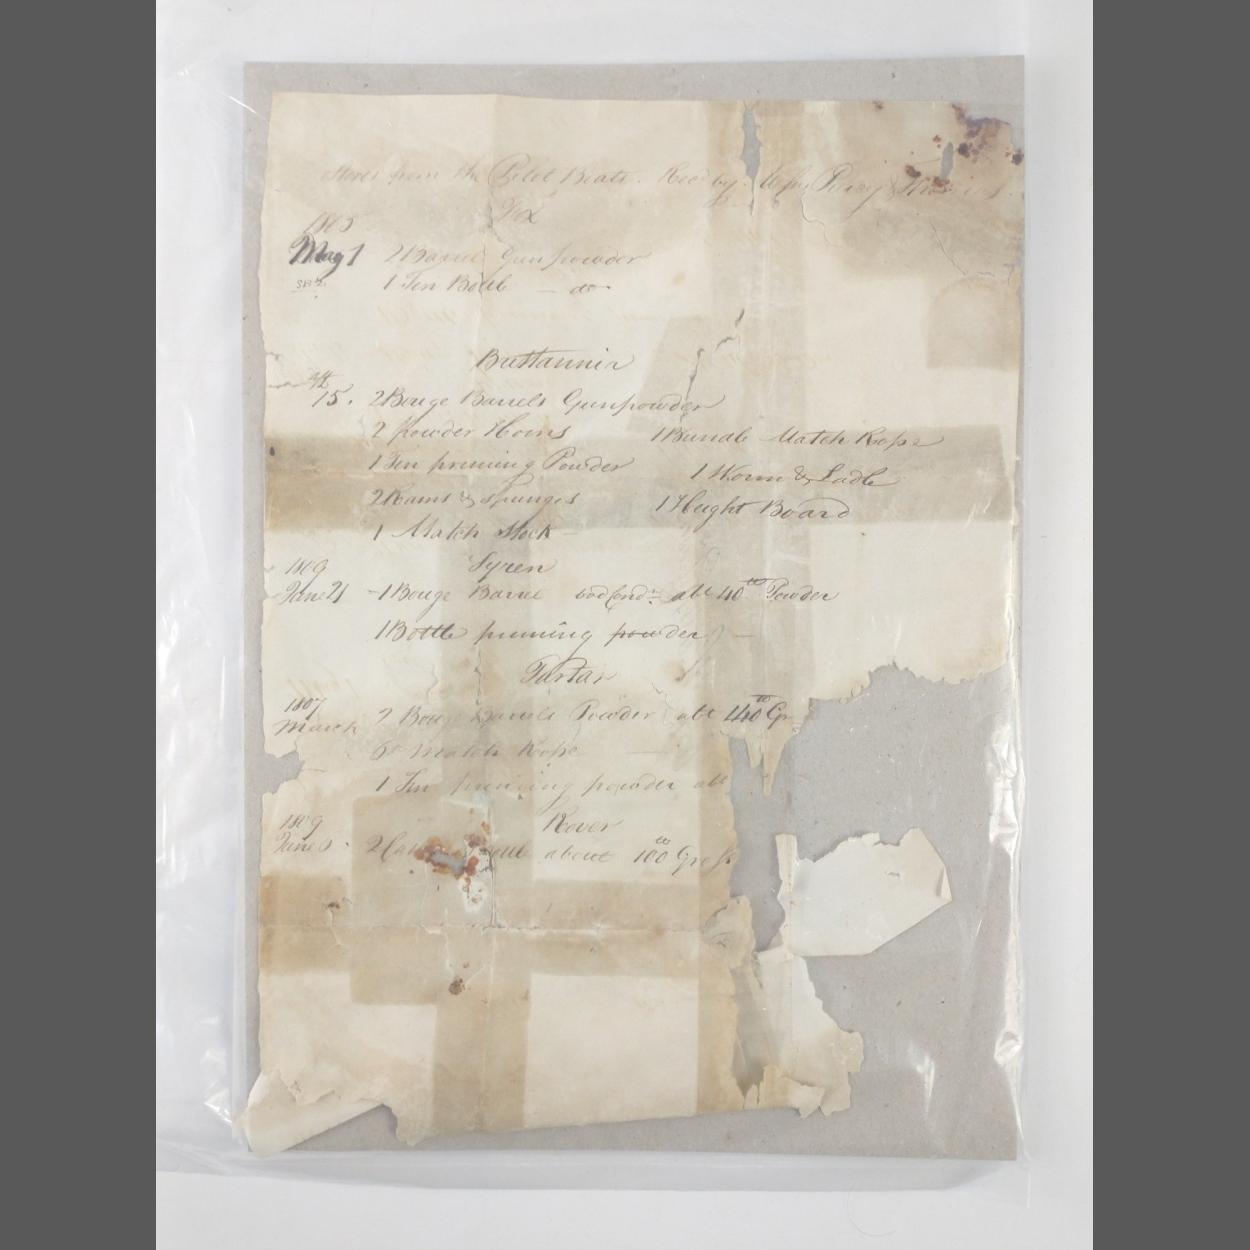 Stores from the Pilot Boats. Recd by
Fox
1805
May 1 2 Barrel Gunpowder
1 Tin Bottle — do
Brittannia
15. 2 Bouge Barrels Gunpowder
2 powder Horns 1 Bundle Match Rope
1 Tin priming Powder 1 Worm & Ladle
2 Rams & spunges 1 Haght Board
1 Match Stock —
1809 Syren
June 21 - 1 Bouge Barrel abt 40 lb Powder
1 Bottle priming powder —
Tartar
1807
March 2 Bouge Barrels Powder abt 140 lb Gr
Match Rope —
1 Tin priming powder abt
1809 Rover
June 6. 2 about 100 lb Gross